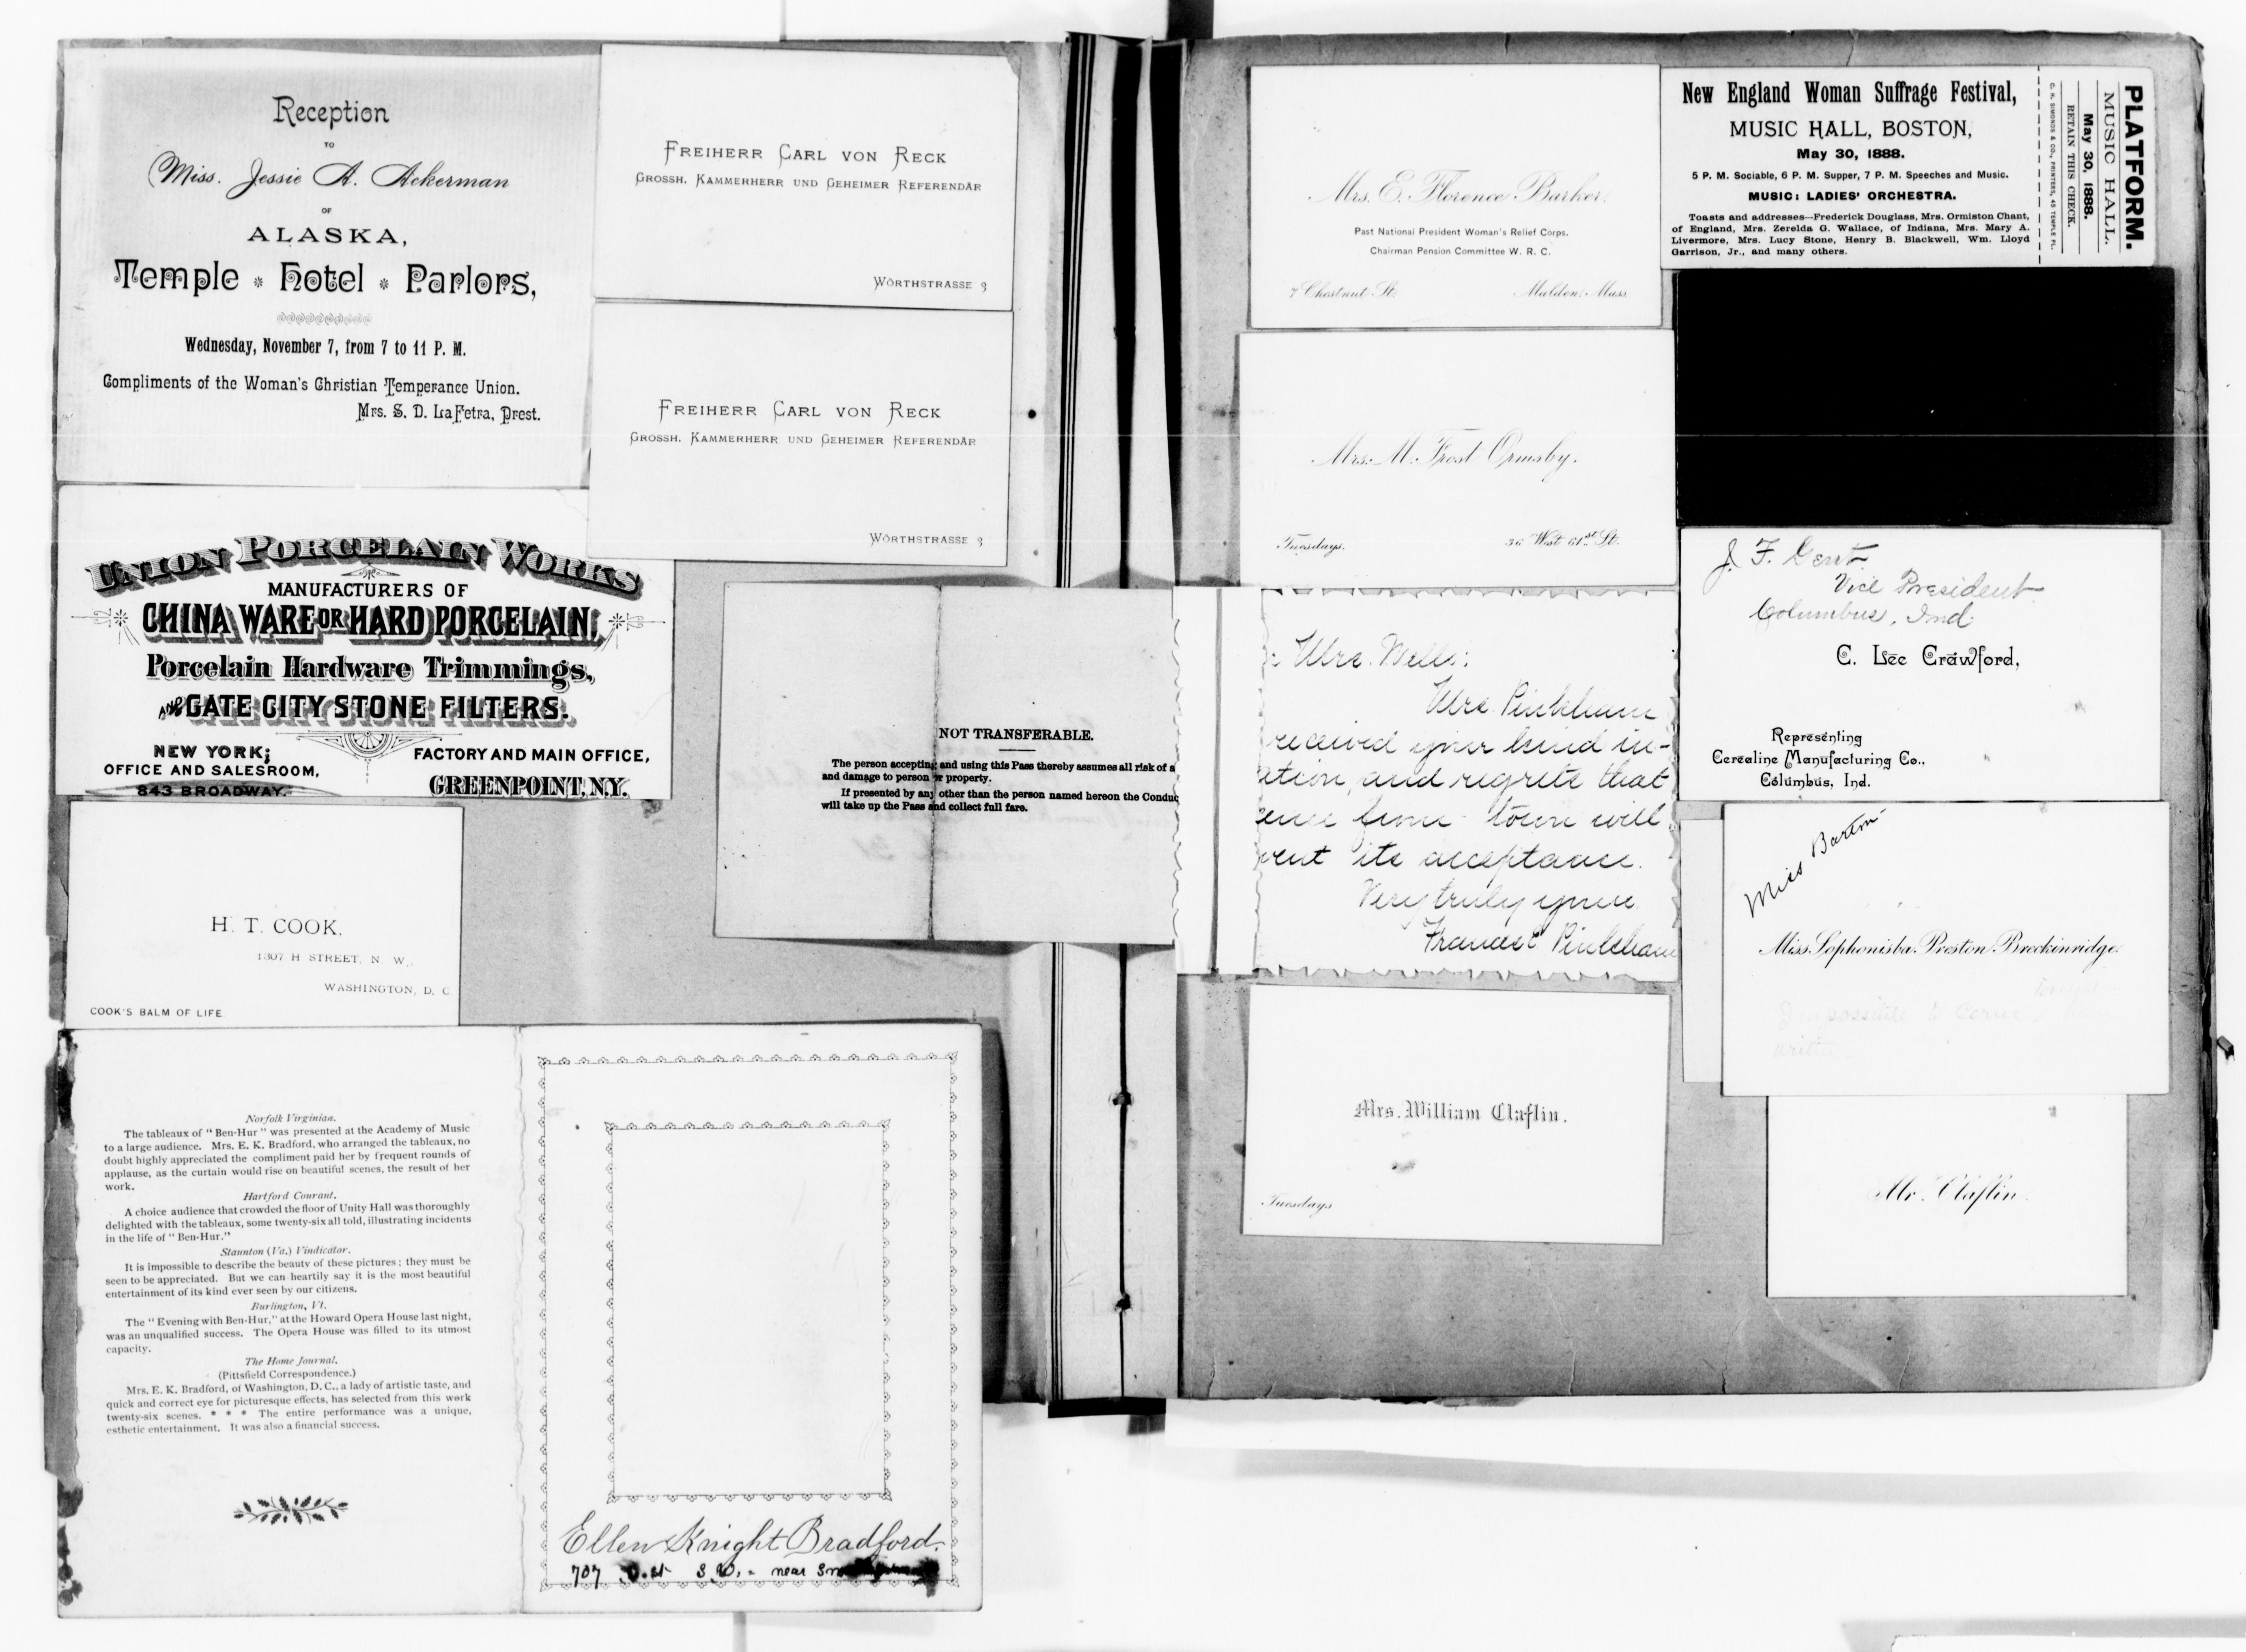 Reception
TO
Miss. Jessie A. Ackerman
OF
ALASKA,
Temple * Hotel * Parlors,
Wednesday, November 7, from 7 to 11 P. M.
Compliments of the Woman's Christian Temperance Union.
Mrs. S. D. LaFetra, Prest.
FREIHERR CARL VON RECK
GROSSH. KAMMERHERR UND GEHEIMER REFERENDÄR
WÖRTHSTRASSE 3
FREIHERR CARL VON RECK
GROSSH. KAMMERHERR UND GEHEIMER REFERENDÄR
WÖRTHSTRASSE 3
UNION PORCELAIN WORKS
MANUFACTURERS OF
CHINA WARE OR HARD PORCELAIN,
Porcelain Hardware Trimmings,
AND GATE CITY STONE FILTERS.
NEW YORK;
OFFICE AND SALESROOM,
843 BROADWAY.
FACTORY AND MAIN OFFICE,
GREENPOINT, N.Y.
NOT TRANSFERABLE.
The person accepting and using this Pass thereby assumes all risk of a
and damage to person or property.
If presented by any other than the person named hereon the Conduc
will take up the Pass and collect full fare.
H. T. COOK,
1307 H STREET, N. W.,
WASHINGTON, D. C.
COOK'S BALM OF LIFE
Norfolk Virginian.
The tableaux of "Ben-Hur" was presented at the Academy of Music
to a large audience. Mrs. E. K. Bradford, who arranged the tableaux, no
doubt highly appreciated the compliment paid her by frequent rounds of
applause, as the curtain would rise on beautiful scenes, the result of her
work.
Hartford Courant.
A choice audience that crowded the floor of Unity Hall was thoroughly
delighted with the tableaux, some twenty-six all told, illustrating incidents
in the life of "Ben-Hur."
Staunton (Va.) Vindicator.
It is impossible to describe the beauty of these pictures; they must be
seen to be appreciated. But we can heartily say it is the most beautiful
entertainment of its kind ever seen by our citizens.
Burlington, Vt.
The "Evening with Ben-Hur," at the Howard Opera House last night,
was an unqualified success. The Opera House was filled to its utmost
capacity.
The Home Journal.
(Pittsfield Correspondence.)
Mrs. E. K. Bradford, of Washington, D. C., a lady of artistic taste, and
quick and correct eye for picturesque effects, has selected from this work
twenty-six scenes. * * * The entire performance was a unique,
esthetic entertainment. It was also a financial success.
Ellen Knight Bradford.
707 D. st S.W. - near
Mrs. E. Florence Barker.
Past National President Woman's Relief Corps.
Chairman Pension Committee W. R. C.
7 Chestnut St.
Malden, Mass.
New England Woman Suffrage Festival,
MUSIC HALL, BOSTON,
May 30, 1888.
5 P. M. Sociable, 6 P. M. Supper, 7 P. M. Speeches and Music.
MUSIC: LADIES' ORCHESTRA.
Toasts and addresses—Frederick Douglass, Mrs. Ormiston Chant,
of England, Mrs. Zerelda G. Wallace, of Indiana, Mrs. Mary A.
Livermore, Mrs. Lucy Stone, Henry B. Blackwell, Wm. Lloyd
Garrison, Jr., and many others.
PLATFORM.
MUSIC HALL.
May 30, 1888.
RETAIN THIS CHECK.
C. H. SIMONDS & CO., PRINTERS, 45 TEMPLE PL.
Mrs. M. Frost Ormsby.
Tuesdays.
36 West 61st St.
Mrs. Wells:
Mrs. Pinkham
received your kind in-
ation, and regrets that
ence from town will
vent its acceptance.
Very truly yours
Frances Pinkham
J. F. Gent
Vice President
Columbus, Ind
C. Lee Crawford,
Representing
Cerealine Manufacturing Co.,
Columbus, Ind.
Miss Barton
Miss Sophonisba Preston Breckinridge.
Impossible to come
Mrs. William Claflin.
Tuesdays
Mr. Claflin.